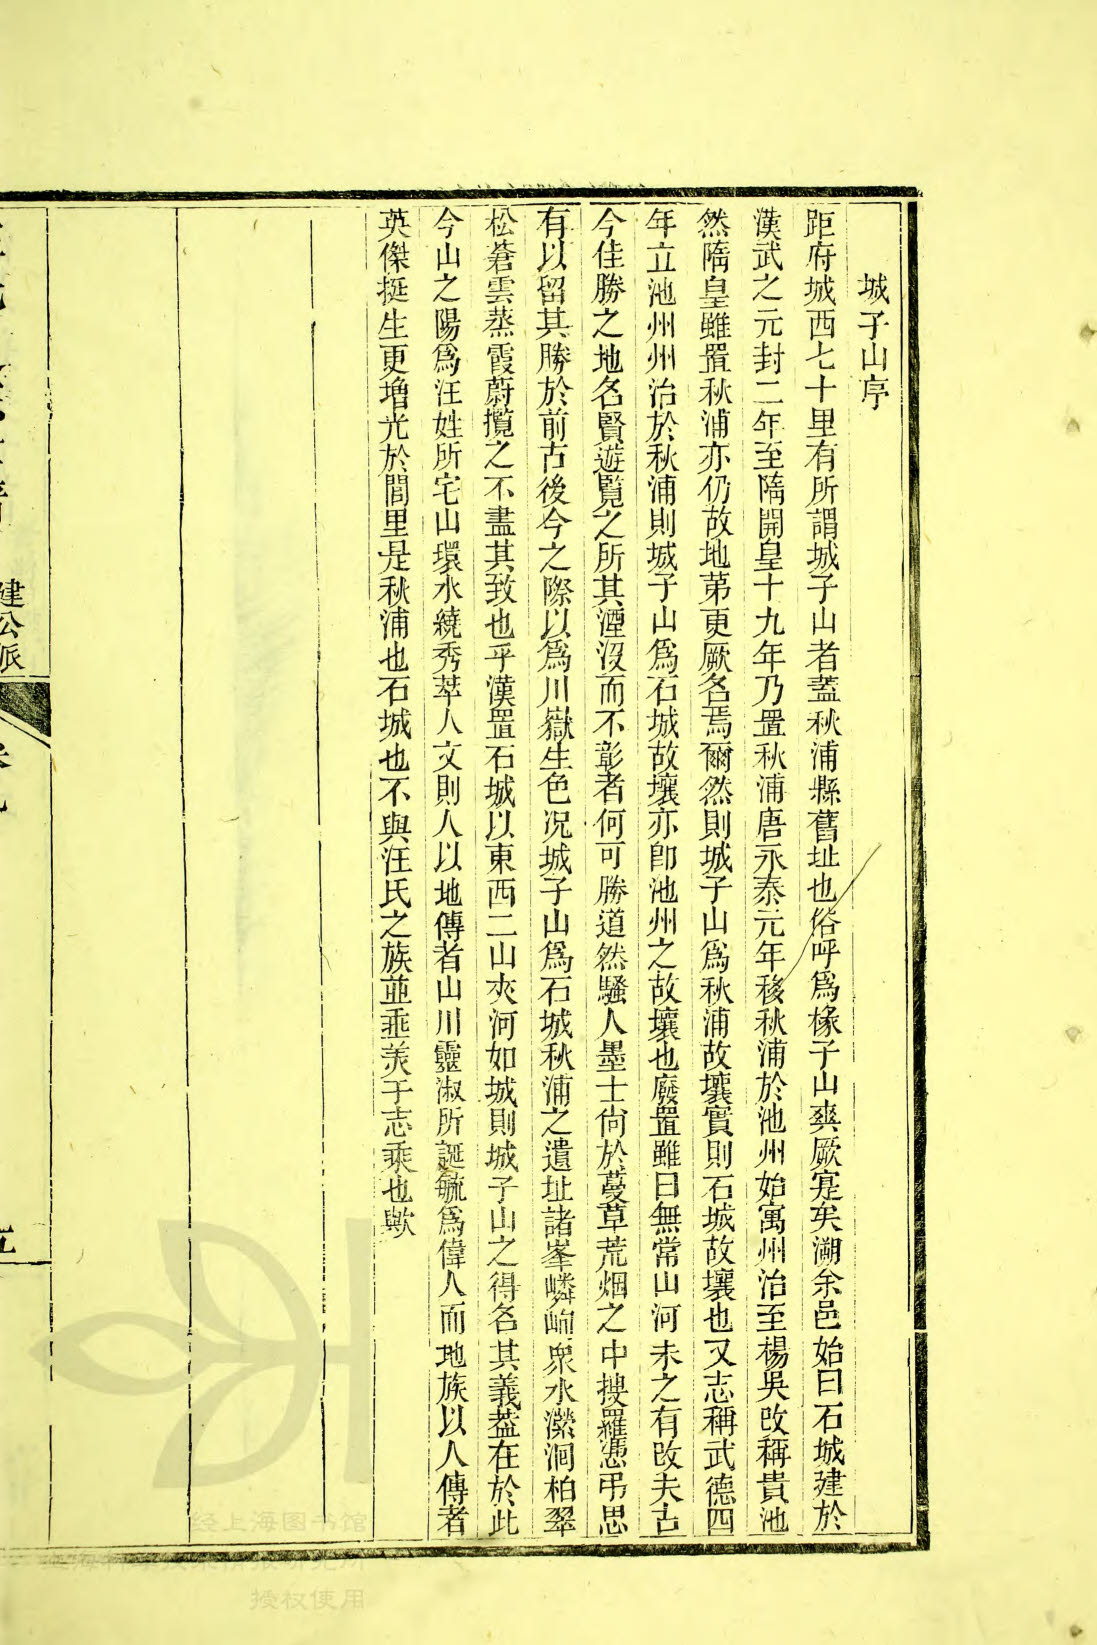 城子山序
距府城西七十里有所謂城子山者蓋秋浦縣舊址也俗呼爲椽子山爽厥寔矣溯余邑始曰石城建於
漢武之元封二年至隋開皇十九年乃置秋浦唐永泰元年移秋浦於池州始寓州治至楊吳改稱貴池
然隋皇雖置秋浦亦仍故地第更厥名焉爾然則城子山爲秋浦故壤實則石城故壤也又志稱武德四
年立池州州治於秋浦則城子山爲石城故壤亦卽池州之故壤也廢置雖曰無常山河未之有改夫古
今佳勝之地名賢遊覽之所其湮沒而不彰者何可勝道然騷人墨士尙於蔓草荒烟之中搜羅憑弔思
有以留其勝於前古後今之際以爲川嶽生色况城子山爲石城秋浦之遺址諸峯嶙峋衆水瀠洄柏翠
松蒼雲蒸霞蔚攬之不盡其致也乎漢置石城以東西二山夾河如城則城子山之得名其義葢在於此
今山之陽爲汪姓所宅山環水繞秀萃人文則人以地傳者山川靈淑所誕毓爲偉人而地族以人傳者
英傑挺生更增光於閭里是秋浦也石城也不與汪氏之族並垂羙于志乘也歟
建公派
五
经上海图书馆
授权使用